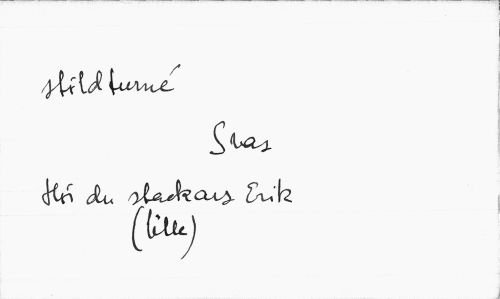 stildturné
Svas
Hör du stackars Erik
(lille)